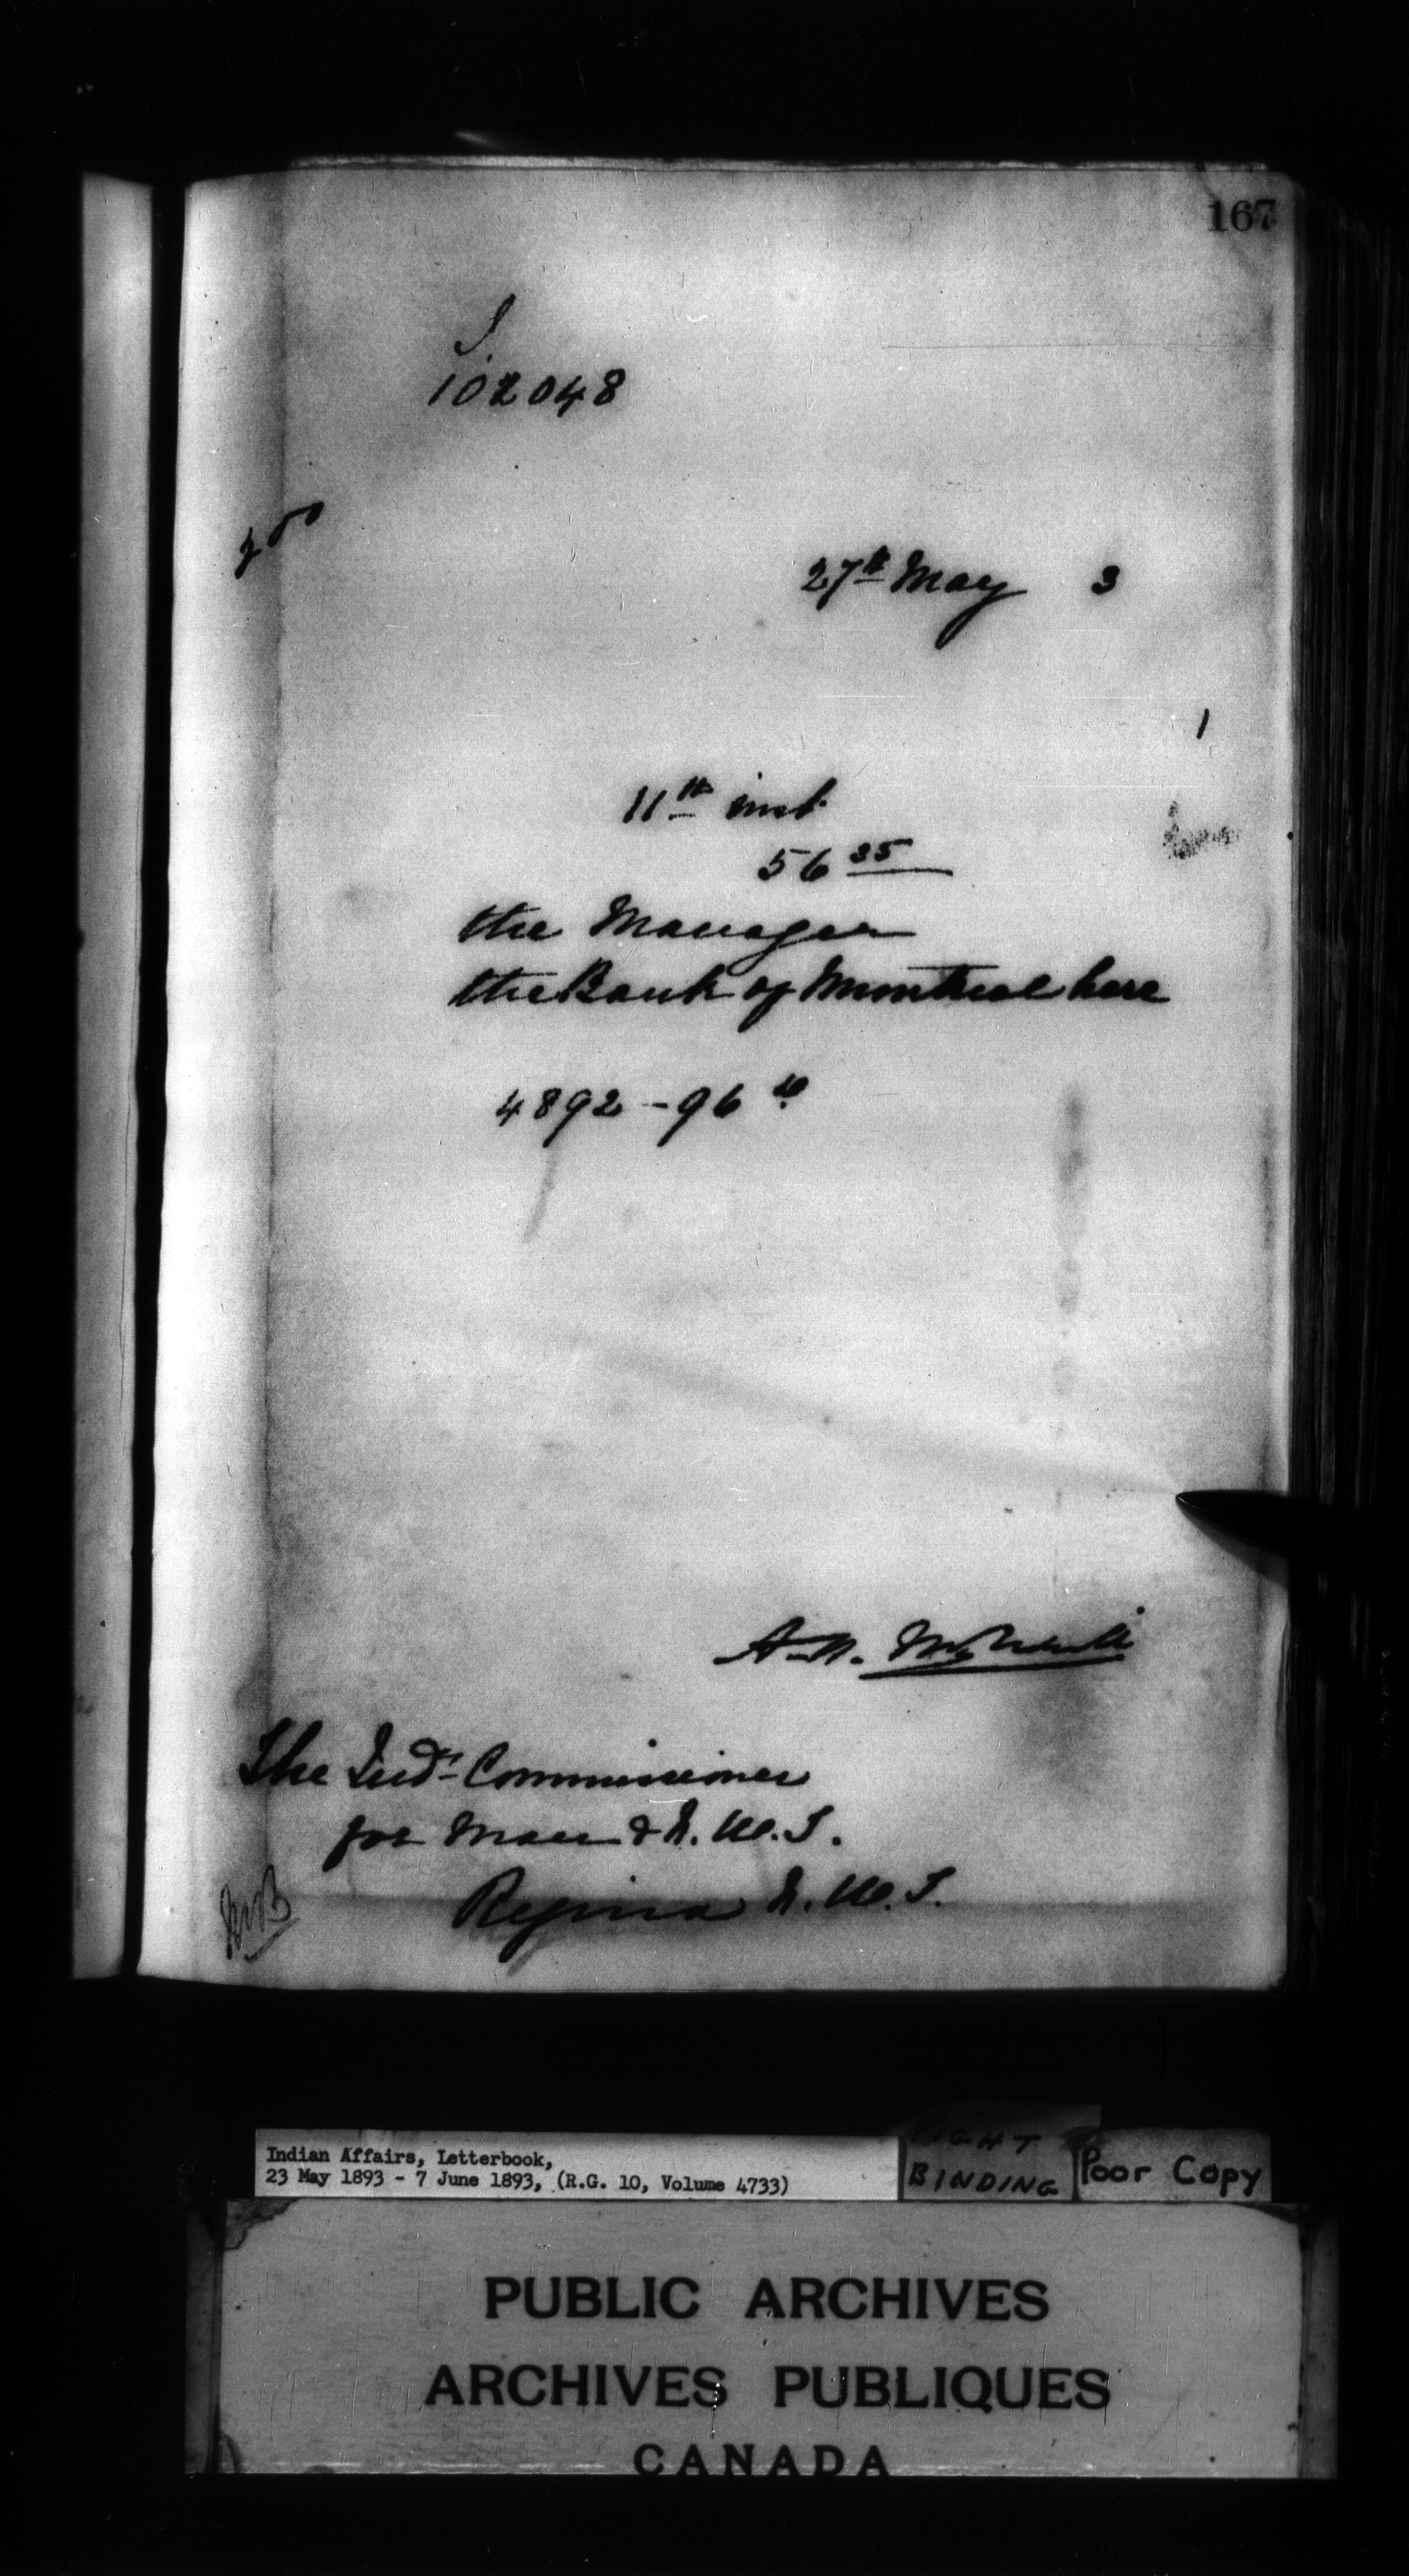 167
102048
27th May 3
1
11th inst.
56 35
the Manager
the Bank of Montreal here
4892-96
A. N. McNeill
The Ind. Commissioner
for Man & N. W. T.
Regina N. W. T.
Indian Affairs, Letterbook,
23 May 1893 - 7 June 1893, (R.G. 10, Volume 4733)
BINDING
Poor Copy
PUBLIC ARCHIVES
ARCHIVES PUBLIQUES
CANADA